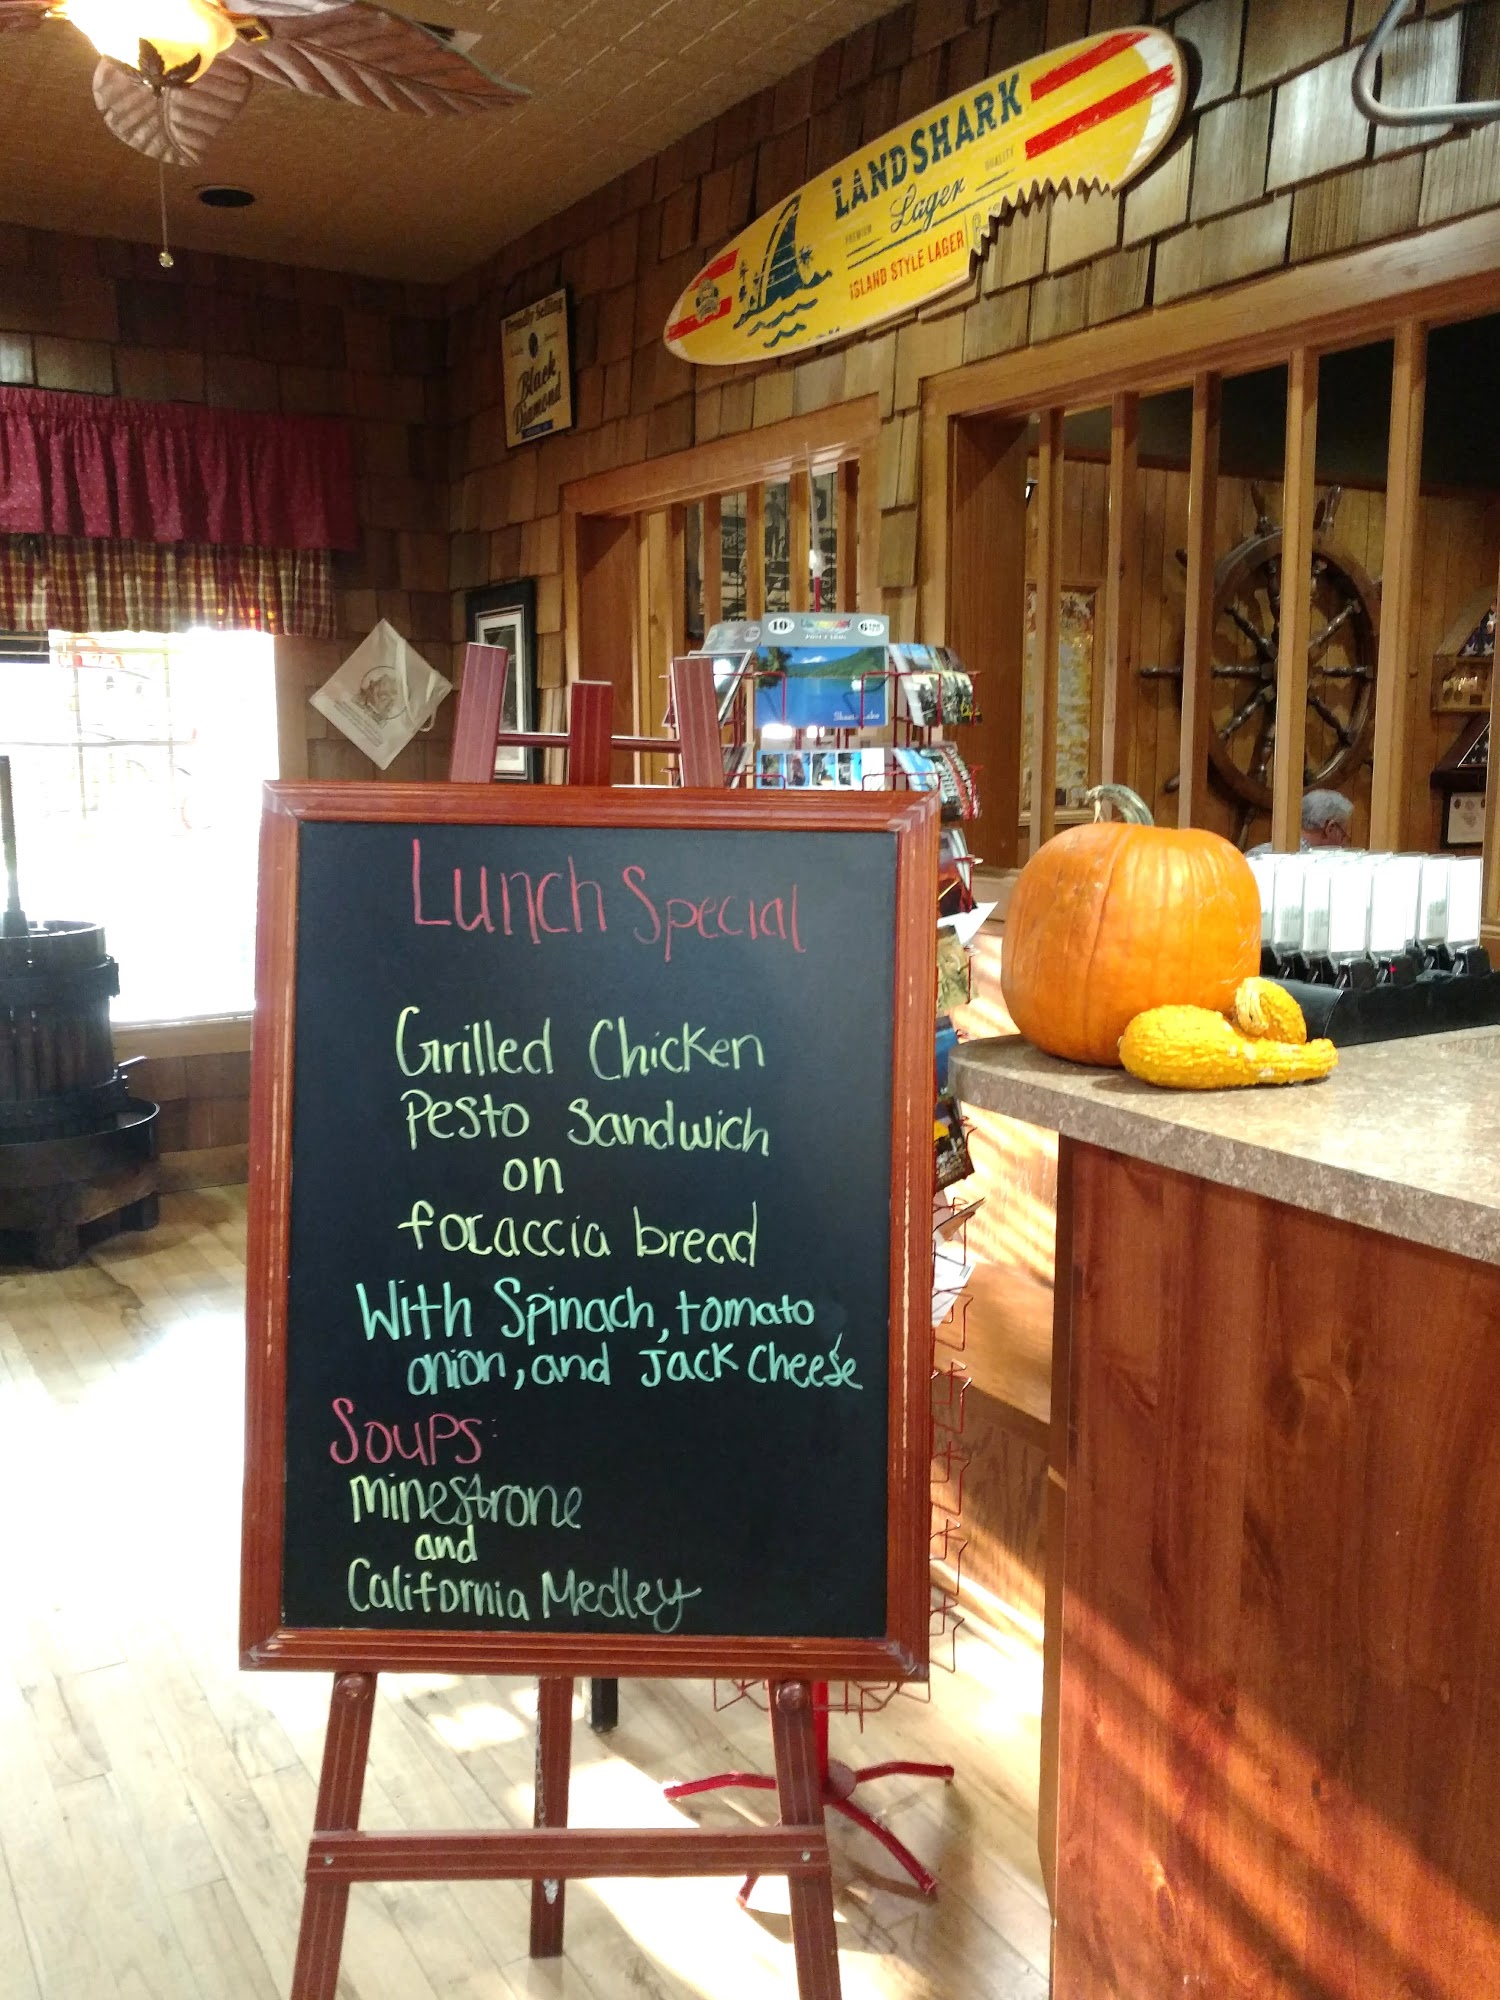 LANDSHARK
Lager
PREMIUM
QUALITY
ISLAND STYLE LAGER
Proudly Selling
Black
Diamond
10¢
Lunch Special
Grilled Chicken
Pesto Sandwich
on
focaccia bread
With Spinach, tomato
onion, and Jack Cheese
Soups:
minestrone
and
California Medley